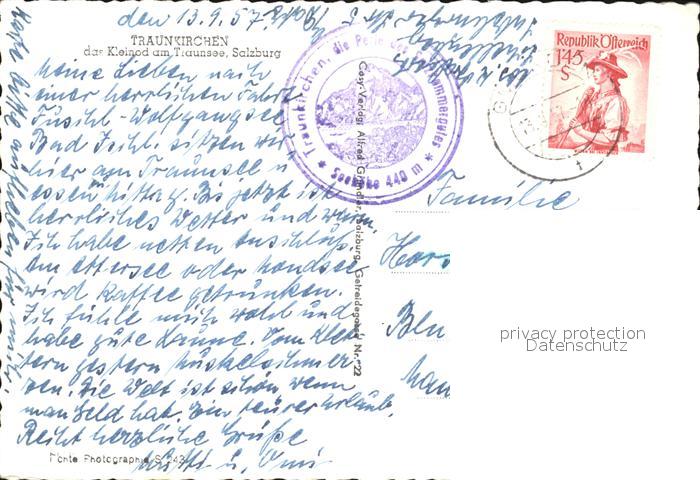 den 13.9.57.
TRAUNKIRCHEN
das Kleinod am Traunsee, Salzburg
Meine Lieben nach
einer herrlichen Fahrt
Fuschl-Wolfgangsee
Bad Ischl sitzen wir
hier am Traunsee u
essen Mittag. Bis jetzt ist
herrliches Wetter und warm.
Ich habe netten Anschluß.
Am Attersee oder Mondsee
wird Kaffee getrunken.
Ich fühle mich wohl und
habe gute Laune. Vom Klet
tern gestern Muskelschmer
zen. Die Welt ist schön wenn
man Geld hat. Ein teurer Urlaub.
Recht herzliche Grüße
Mutti u. Omi
Echte Photographie
Traunkirchen, die Perle des Salzkammergutes
Seehöhe 440 m
Cosy-Verlag Alfred Gründler, Salzburg, Getreidegasse Nr. 22
Republik Österreich
1'45
S
Familie
Hors
Blu
privacy protection
Datenschutz